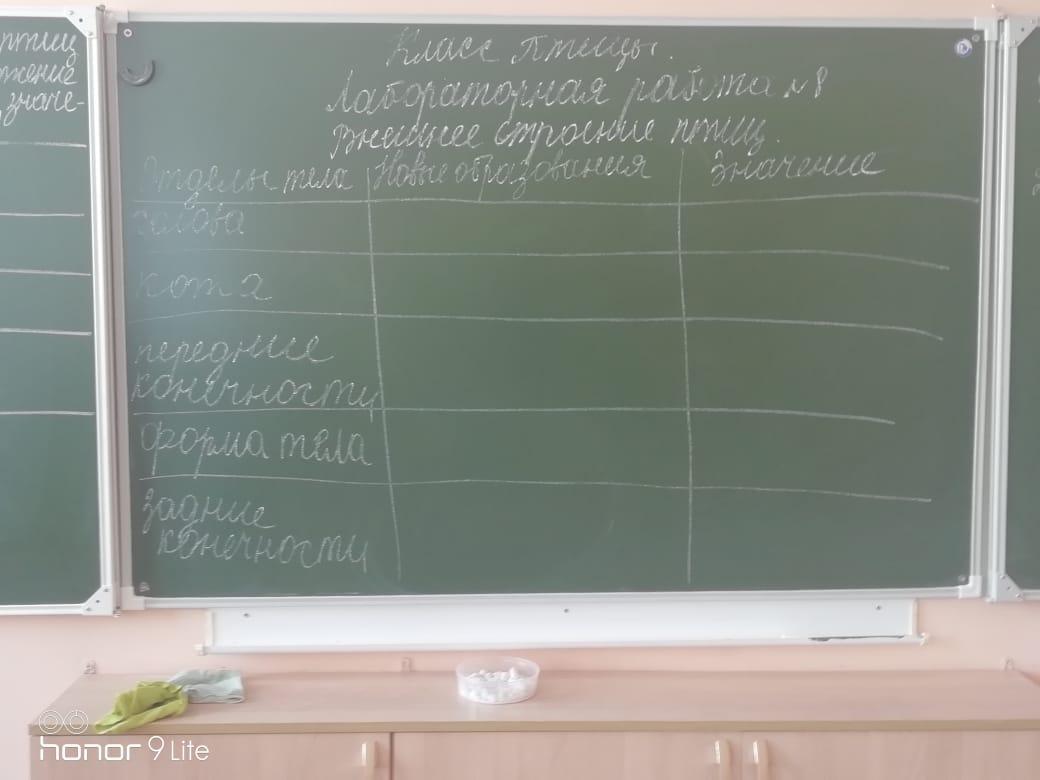 птиц
жение
значе-
Класс Птицы.
Лабораторная работа №8
Внешнее строение птиц.
Отделы тела Новые образования Значение
голова
кожа
передние
конечности
форма тела
задние
конечности
honor 9 Lite